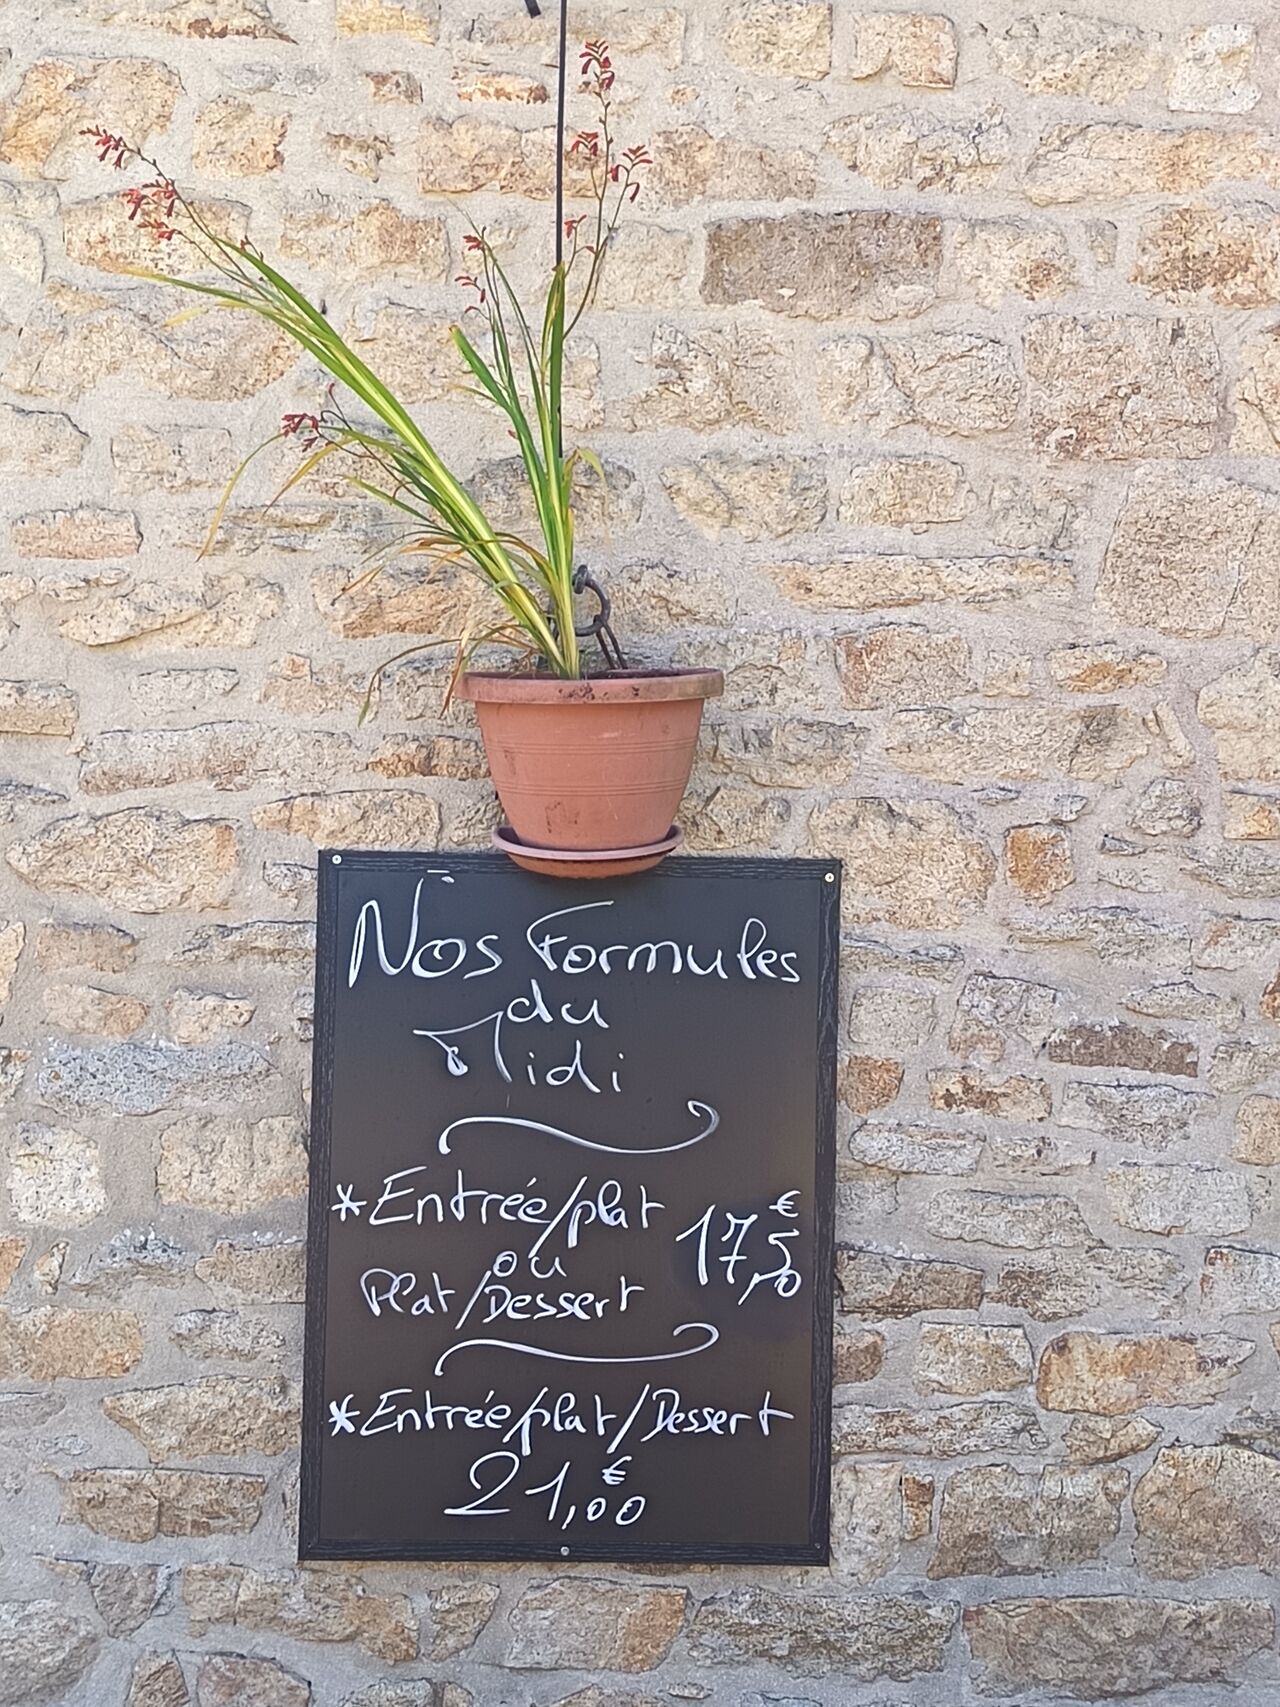 Nos Formules
du
Midi
*Entrée/plat
ou
Plat/Dessert
17,50€
*Entrée/plat/Dessert
21,00€